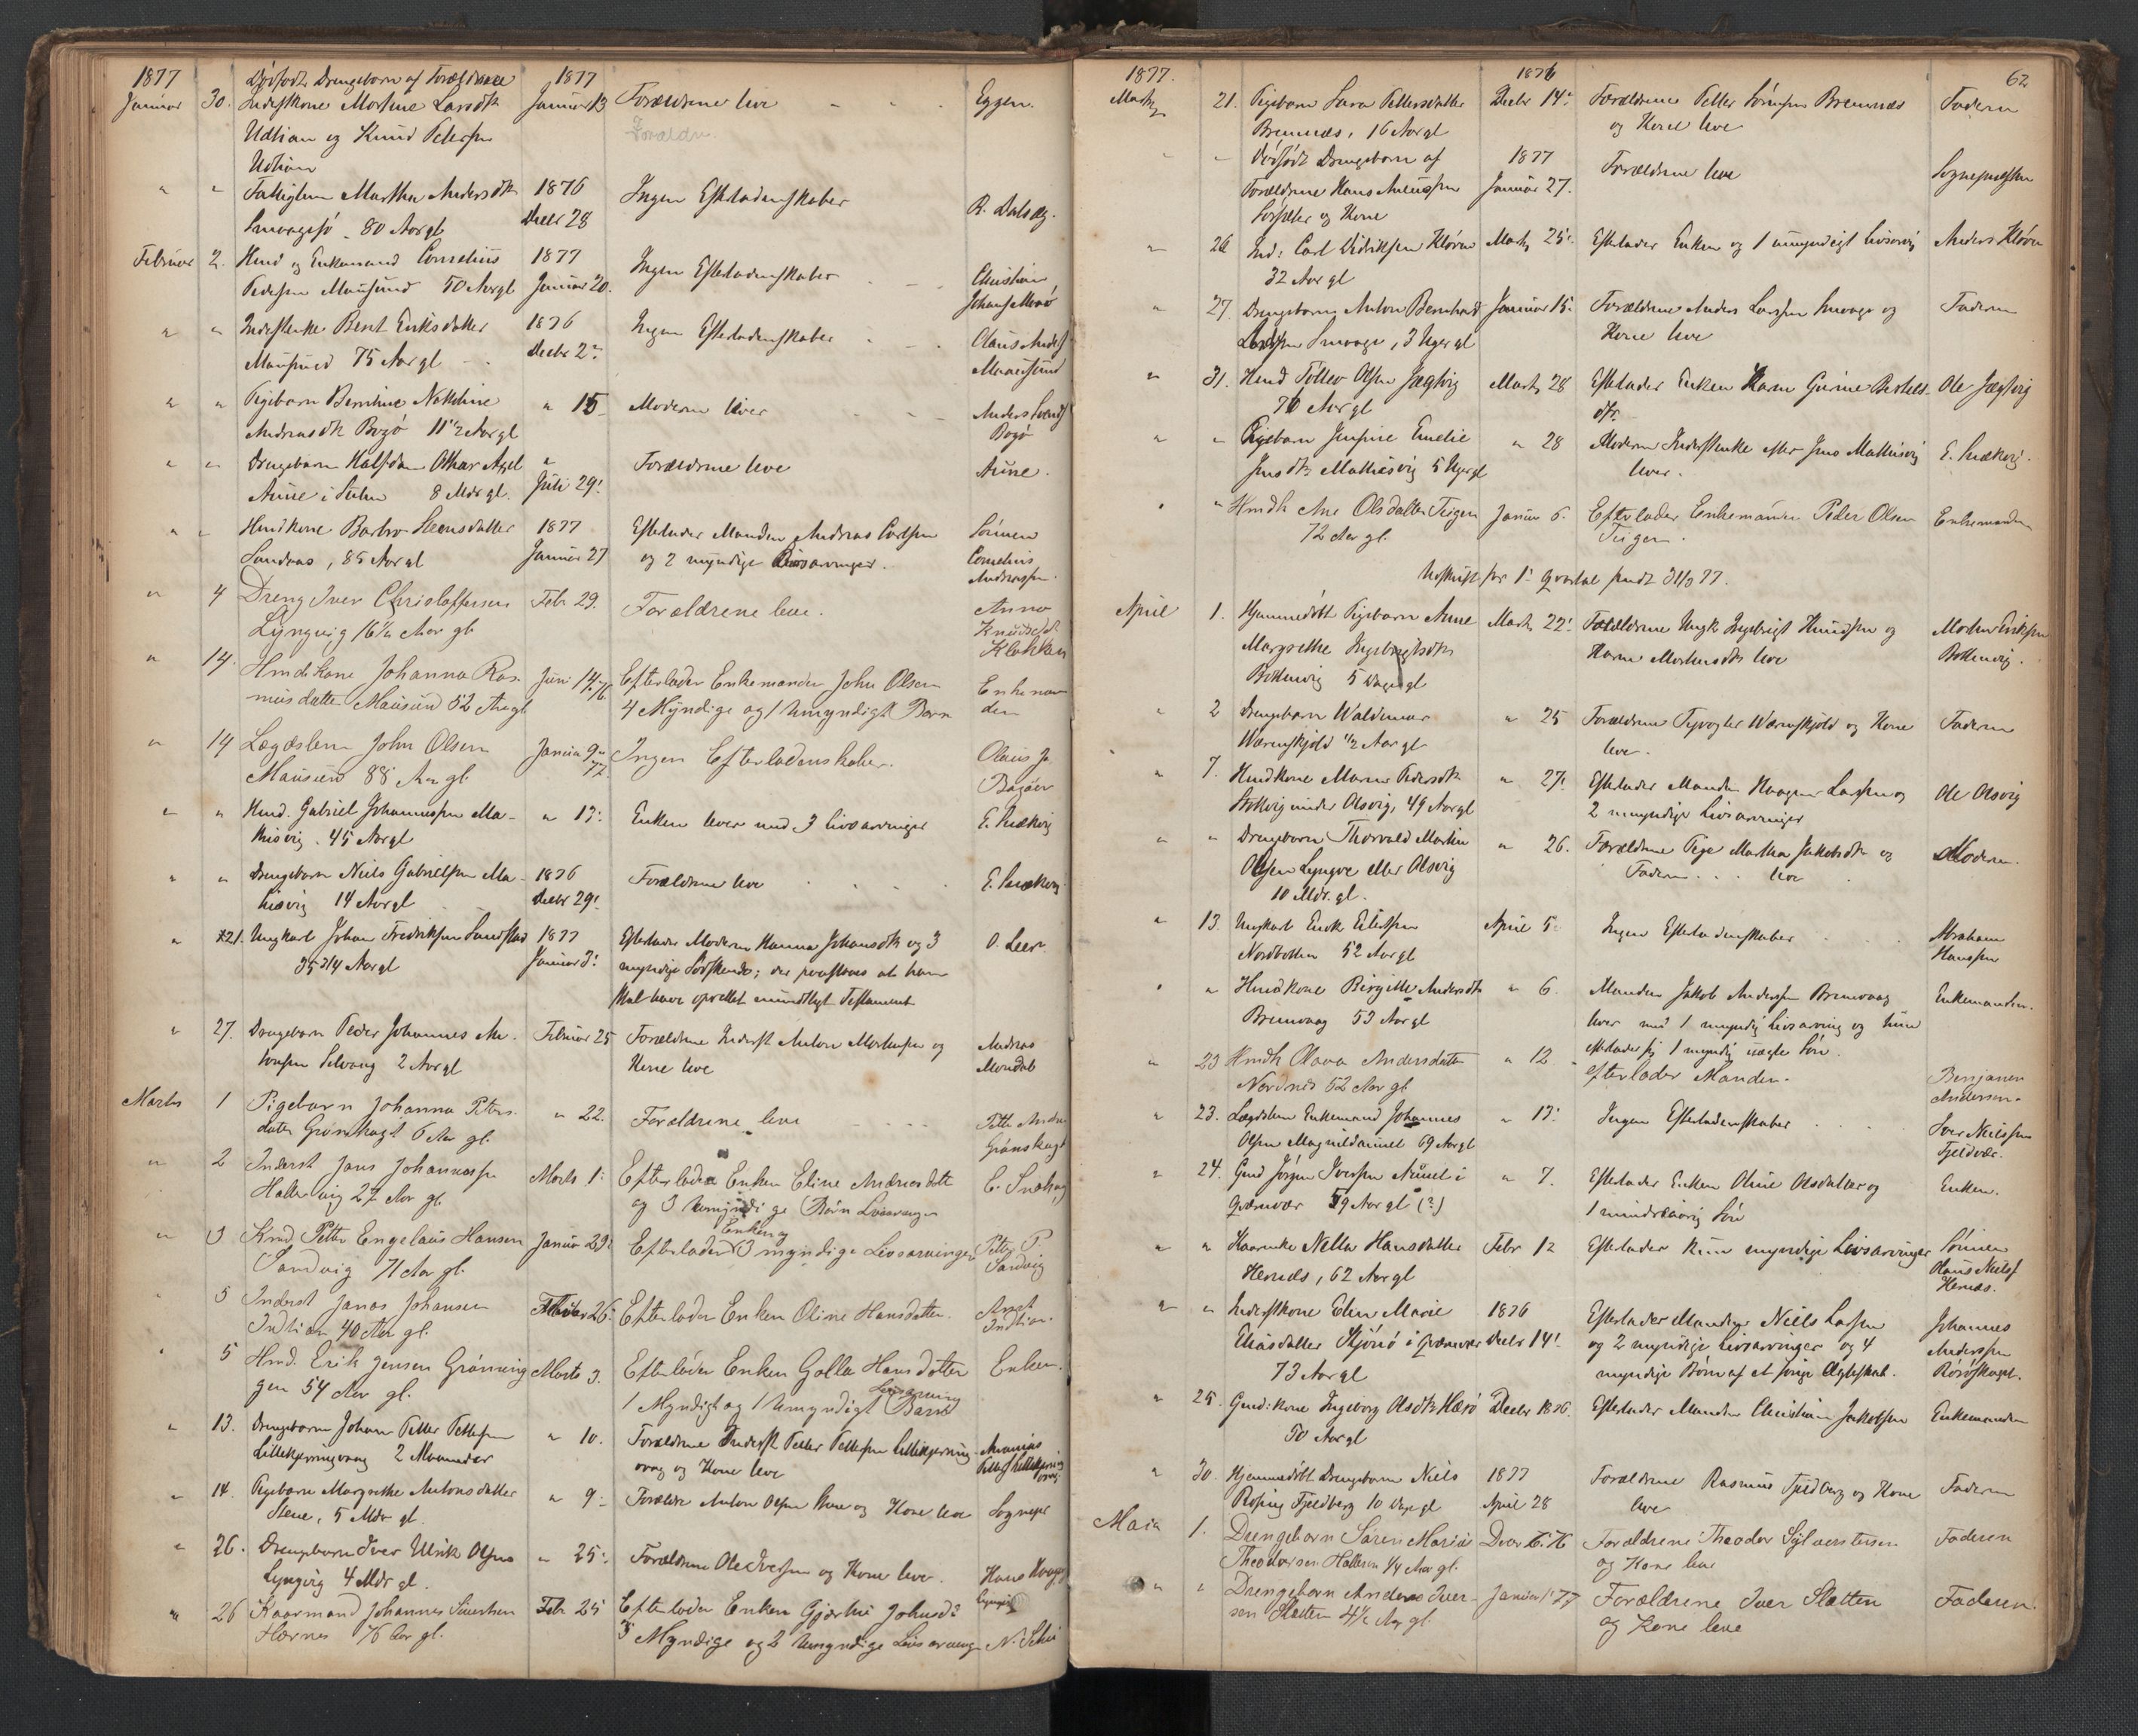 1877
Januar 30. Dødfødt Drengebarn af Forældrene
Inderstkone Martine Larsdtr
Udtian og Knud Petersen
Udtian
1877
Januar 13
Forældrene leve
Foraldr.
Eggen.
" " Fattiglem Martha Andersdtr
Smaagesø 80 Aar gl
1876
Decbr 28
Ingen Efterladenskaber
R. Dalsæg.
Februar 2. Hmd og Enkemand Cornelius
Pedersen Mausund 50 Aar gl
1877
Januar 20.
Ingen Efterladenskaber
Christian
" " Inderstenke Berit Eriksdatter
Mausund 75 Aar gl
1876
Decbr 2.
Ingen Efterladenskaber
Olaus
Mausund
" " Pigebarn Bernhine
Andreasdtr Bogø 11 1/2 Aar gl
" 15
Moderen lever
Anders
Bogø
" " Drengebarn Halfdan Othar Axel
Aune i 8 Mdr gl.
"
Juli 29.
Forældrene leve
Aune.
" " Hmdkone Barbro
, 85 Aar gl
1877
Januar 27
Efterlader Manden Andreas
og 2 myndige Livsarvinger.
Sønnen
Cornelius
Andreassen
" 4 Dreng Iver Christoffersen
Lyngvig 16 1/2 Aar gl.
Febr 29.
Forældrene leve.
Anna
Klakken
" 14. Hmdskone Johanna Ras-
musdatter Mausund 52 Aar gl
Juni 14. 76
Efterlader Enkemanden John Olsen
4 Myndige og 1 Umyndigt Barn
Enkeman
den
" 14 Lægdslem John Olsen
Mausund 88 Aar gl.
Januar 9
77.
Ingen Efterladenskaber.
Olaus Jo
Bogøen
" " Hmd. Gabriel Johannessen Ma-
thisvig. 45 Aar gl
" 13.
Enken lever med 3 Livsarvinger
E. Snekvig
" " Drengebarn Niels Gabrielsen Ma-
tisvig 14 Aar gl
1876
Decbr 29.
Forældrene leve
E. Snekvig
" 21. Ungkarl Johan Fredriksen Sundstad
35 3/4 Aar gl
1877
Januar 3.
Efterlader Moderen Hanna Johansdtr og 3
myndige Sødskende; der paastaaes at han
skal have oprettet mundtligt Testament
O. Leer
" 27. Drengebarn Peder Johannes An-
tonsen Selvaag 2 Aar gl
Februar 25
Forældrene Inderst Anton Mortensen og
Kone leve
Andreas
Mondal
Marts 1 Pigebarn Johanna Peters-
datter Grønskagt 6 Aar gl.
" 22.
Forældrene leve
Petter
Grønskagt
" 2 Inderst Jans Johannessen
Hallervig 27 Aar gl.
Marts 1.
Efterlader Enken Eline Andreasdatter
og 3 Umyndige Børn Livsarvinger
E. Snekvig
" 3 Kmd Petter Engelaus Hansen
Sandvig 71 Aar gl.
Januar 29.
Enken og
Efterlader 3 myndige Livsarvinger
Petter P
Sandvig
" 5 Inderst Janas Johansen
Indtian 40 Aar gl.
Februar 26.
Efterlader Enken Oline Hansdatter.
Indtian.
" 5 Hmd. Erik Jensen Grønning-
gen 54 Aar gl.
Marts 3.
Efterlader Enken Golla Hansdatter
Livsarving
1 Myndigt og 1 Umyndigt Barn
Enken.
" 13. Drengebarn Johan Petter Pettersen
Lillekjerringvaag 2 Maaneder
" 10.
Forældrene Inderst Petter Pettersen Lillekjerring-
vaag og Kone leve
Ananias
" 14. Pigebarn Margrethe Antonsdatter
Stene, 5 Mdr gl.
" 9.
Forældr Anton Olsen Stene og Kone leve
Sognepr
" 26. Drengebarn Iver Ulrik Olsen
Lyngvig 4 Mdr gl.
" 25.
Forældrene Ole Iversen og Kone leve.
Hans
" 26 Kaarmand Johannes Sivertsen
Hærnes 76 Aar gl.
Febr 25
Efterlader Enken Gjertru Johnsd.
5 Myndige og 2 Umyndige Livsarvinge
N. Selve
62
1877.
Marts 21. Pigebarn Sara Pettersdatter
Bremnæs, 16 Aar gl
1876
Decbr 14.
Forældrene Petter Sørensen Bremnæs
og Kone leve
Faderen
" " Dødfødt Drengebarn af
Forældrene Hans Aniussen
Sørsæter og Kone
1877
Januar 27.
Forældrene leve
Sognepresten
" 26 Ind: Carl Didriksen Kløven
32 Aar gl
Marts 25.
Efterlader Enken og 1 umyndigt Livsarvig
Anders Kløven
" 27. Drengebarn Anton Bernhard
Smaage, 3 Uger gl
Januar 15.
Forældrene Anders Larsen Smaage og
Kone leve
Faderen
" 31. Hmd Tollev Olsen Jægtvig
70 Aar gl
Marts 28
Efterlader Enken Karen Gurine Bertels-
dtr.
Ole Jægtvig
" " Pigebarn Jensine Emelie
Jensdtr Mathisvig 5 Uger gl
" 28
Moderen Inderstenke efter Jens Mathisvig
lever.
E. Snekvig.
" " Hmdk Ane Olsdatter Teigen
72 Aar gl.
Januar 6.
Efterlader Enkemanden Peder Olsen
Teigen.
Enkemanden
Udskrift for 1. Qvartal sendt 31/3 77.
April 1. Hjemmedøbt Pigebarn Anne
Margrethe Ingebrigtsdtr
Bottenvig 5 Dage gl
Marts 22.
Forældrene Ungk Ingebrigt Knudsen og
Karen Mortensdtr leve
Morten Eriksen
Bottenvig.
" 2 Drengebarn Waldemar
Wærnskjold 1/2 Aar gl
" 25
Forældrene Fyrvogter Wærnskjold og Kone
leve.
Faderen
" 7. Hmdkone Maren Pedersdtr
under Olsvig, 49 Aar gl
" 27.
Efterlader Manden Haagen Larsen og
2 umyndige Livsarvinger
Ole Olsvig
" " Drengebarn Thorvald Martin
Olsen Lyngve eller Olsvig
10 Mdr. gl.
" 26.
Forældrene Pige Martha Jakobsdtr og
Faderen . . . leve
Moderen.
" 13. Ungkarl Enok Eilertsen
Nordbotten 52 Aar gl
April 5.
Ingen Efterladenskaber
Abraham
Hanssen
" " Hmdkone Birgitte Andersdtr
Bremvaag 53 Aar gl
" 6.
Manden Jakob Andersen Bremvaag
lever med 1 myndig Livsarving og hun
efterlader sig 1 myndig uægte Søn.
Enkemanden.
" 23 Hmdk Olava Andersdatter
Nordnis 52 Aar gl.
" 12
efterlader Manden.
Benjamin
Andersen.
" 23. Lægdslem Enkemand Johannes
Olsen 69 Aar gl
" 13.
Ingen Efterladenskaber
Iver Nielssen
Fjeldvær.
" 24. Gmd Jørgen Iverssen Aunet i
Qvænvær 59 Aar gl (?)
" 7.
Efterlader Enken Oline Olsdatter og
1 mindreaarig Søn
Enken.
" " Kaarenke Nella Hansdatter
Hernæs, 62 Aar gl
Febr 12
Efterlader kun myndige Livsarvinger
Sønnen
Hans Nielsen
Hernæs.
" " Inderstkone Elen Marie
Eliasdatter Stjørnø i Qvænvær
73 Aar gl
1876
Decbr 14.
Efterlader Manden Niels Larsen
og 2 myndige Livsarvinger og 4
myndige Børn af et forrige Ægteskab.
Johannes
Anderssen
" 25. Gmd:kone Ingeborg Olsdtr Hærø
50 Aar gl
Decbr 1876.
Efterlader Manden Christian Jakobsen
Enkemanden
" 30. Hjemmedøbt Drengebarn Niels
Fjeldberg 10 Dage gl
1877
April 28
Forældrene Rasmus Fjeldberg og Kone
leve
Faderen
Maia 1. Drengebarn Søren Marius
Theodorsen Halleren 1/4 Aar gl.
Forældrene Theodor Sylvestersen
og Kone leve
Faderen
" " Drengebarn Anders Iver-
sen Slætten 4 1/2 Aar gl
Januar 1. 77
Forældrene Iver Slætten
og Kone leve
Faderen.